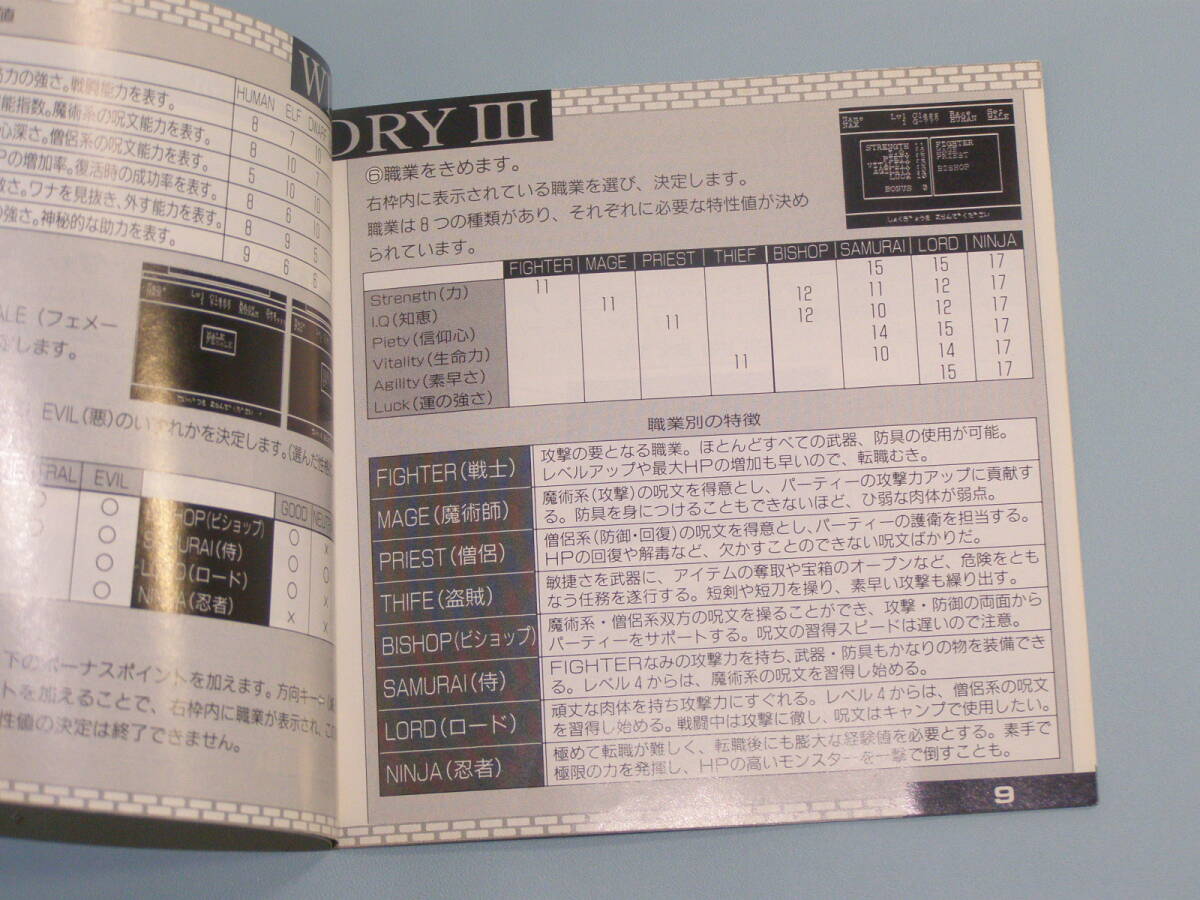 値
力の強さ。戦闘能力を表す。
能指数。魔術系の呪文能力を表す。
心深さ。僧侶系の呪文能力を表す。
Pの増加率。復活時の成功率を表す。
敏さ。ワナを見抜き、外す能力を表す。
強さ。神秘的な助力を表す。
HUMAN ELF DWARF
8 7 10
8 10 7
5 10 10
8 6 10
8 9 5
9 6 6
ALE（フェメー
します。
EVIL(悪)のいずれかを決定します。(選んだ性格
TRAL EVIL
GOOD NEUTR
○ ○ SHOP(ビショップ) ○ x
○ ○ SAMURAI(侍) ○ ○
○ LORD(ロード) ○ x
○ NINJA(忍者) x x
下のボーナスポイントを加えます。方向キー
トを加えることで、右枠内に職業が表示され、こ
性値の決定は終了できません。
W
DRY III
⑥職業をきめます。
右枠内に表示されている職業を選び、決定します。
職業は8つの種類があり、それぞれに必要な特性値が決め
られています。
STRENGTH
LUCK
BONUS
FIGHTER
PRIEST
BISHOP
FIGHTER MAGE PRIEST THIEF BISHOP SAMURAI LORD NINJA
Strength(力) 11 15 15 17
I.Q(知恵) 11 12 11 12 17
Piety(信仰心) 11 12 10 12 17
Vitality(生命力) 14 15 17
Agility(素早さ) 11 10 14 17
Luck(運の強さ) 15 17
職業別の特徴
FIGHTER(戦士)
攻撃の要となる職業。ほとんどすべての武器、防具の使用が可能。
レベルアップや最大HPの増加も早いので、転職むき。
MAGE(魔術師)
魔術系(攻撃)の呪文を得意とし、パーティーの攻撃力アップに貢献す
る。防具を身につけることもできないほど、ひ弱な肉体が弱点。
PRIEST(僧侶)
僧侶系(防御・回復)の呪文を得意とし、パーティーの護衛を担当する。
HPの回復や解毒など、欠かすことのできない呪文ばかりだ。
THIFE(盗賊)
敏捷さを武器に、アイテムの奪取や宝箱のオープンなど、危険をとも
なう任務を遂行する。短剣や短刀を操り、素早い攻撃も繰り出す。
BISHOP(ビショップ)
魔術系・僧侶系双方の呪文を操ることができ、攻撃・防御の両面から
パーティーをサポートする。呪文の習得スピードは遅いので注意。
SAMURAI(侍)
FIGHTERなみの攻撃力を持ち、武器・防具もかなりの物を装備でき
る。レベル4からは、魔術系の呪文を習得し始める。
LORD(ロード)
頑丈な肉体を持ち攻撃力にすぐれる。レベル4からは、僧侶系の呪文
を習得し始める。戦闘中は攻撃に徹し、呪文はキャンプで使用したい。
NINJA(忍者)
極めて転職が難しく、転職後にも膨大な経験値を必要とする。素手で
極限の力を発揮し、HPの高いモンスターを一撃で倒すことも。
9